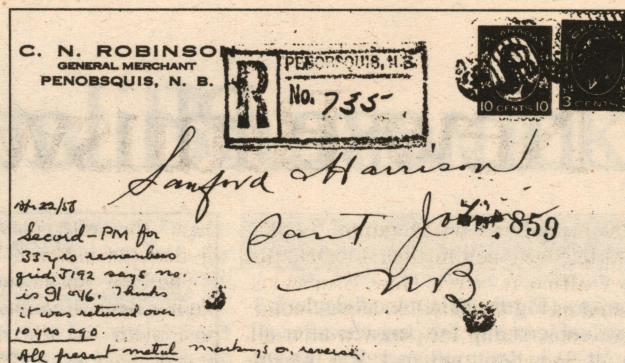 C. N. ROBINSON
GENERAL MERCHANT
PENOBSQUIS, N. B.
R
PENOBSQUIS, N.B.
No. 735
10 CENTS 10
3 CENTS
Sanford Harrison
Saint John
859
NB
22/58
Second - PM for
33 yrs remembers
grid, J192 says no.
is 91 or 46. Thinks
it was returned over
10 yrs ago
All present metal markings on reverse.